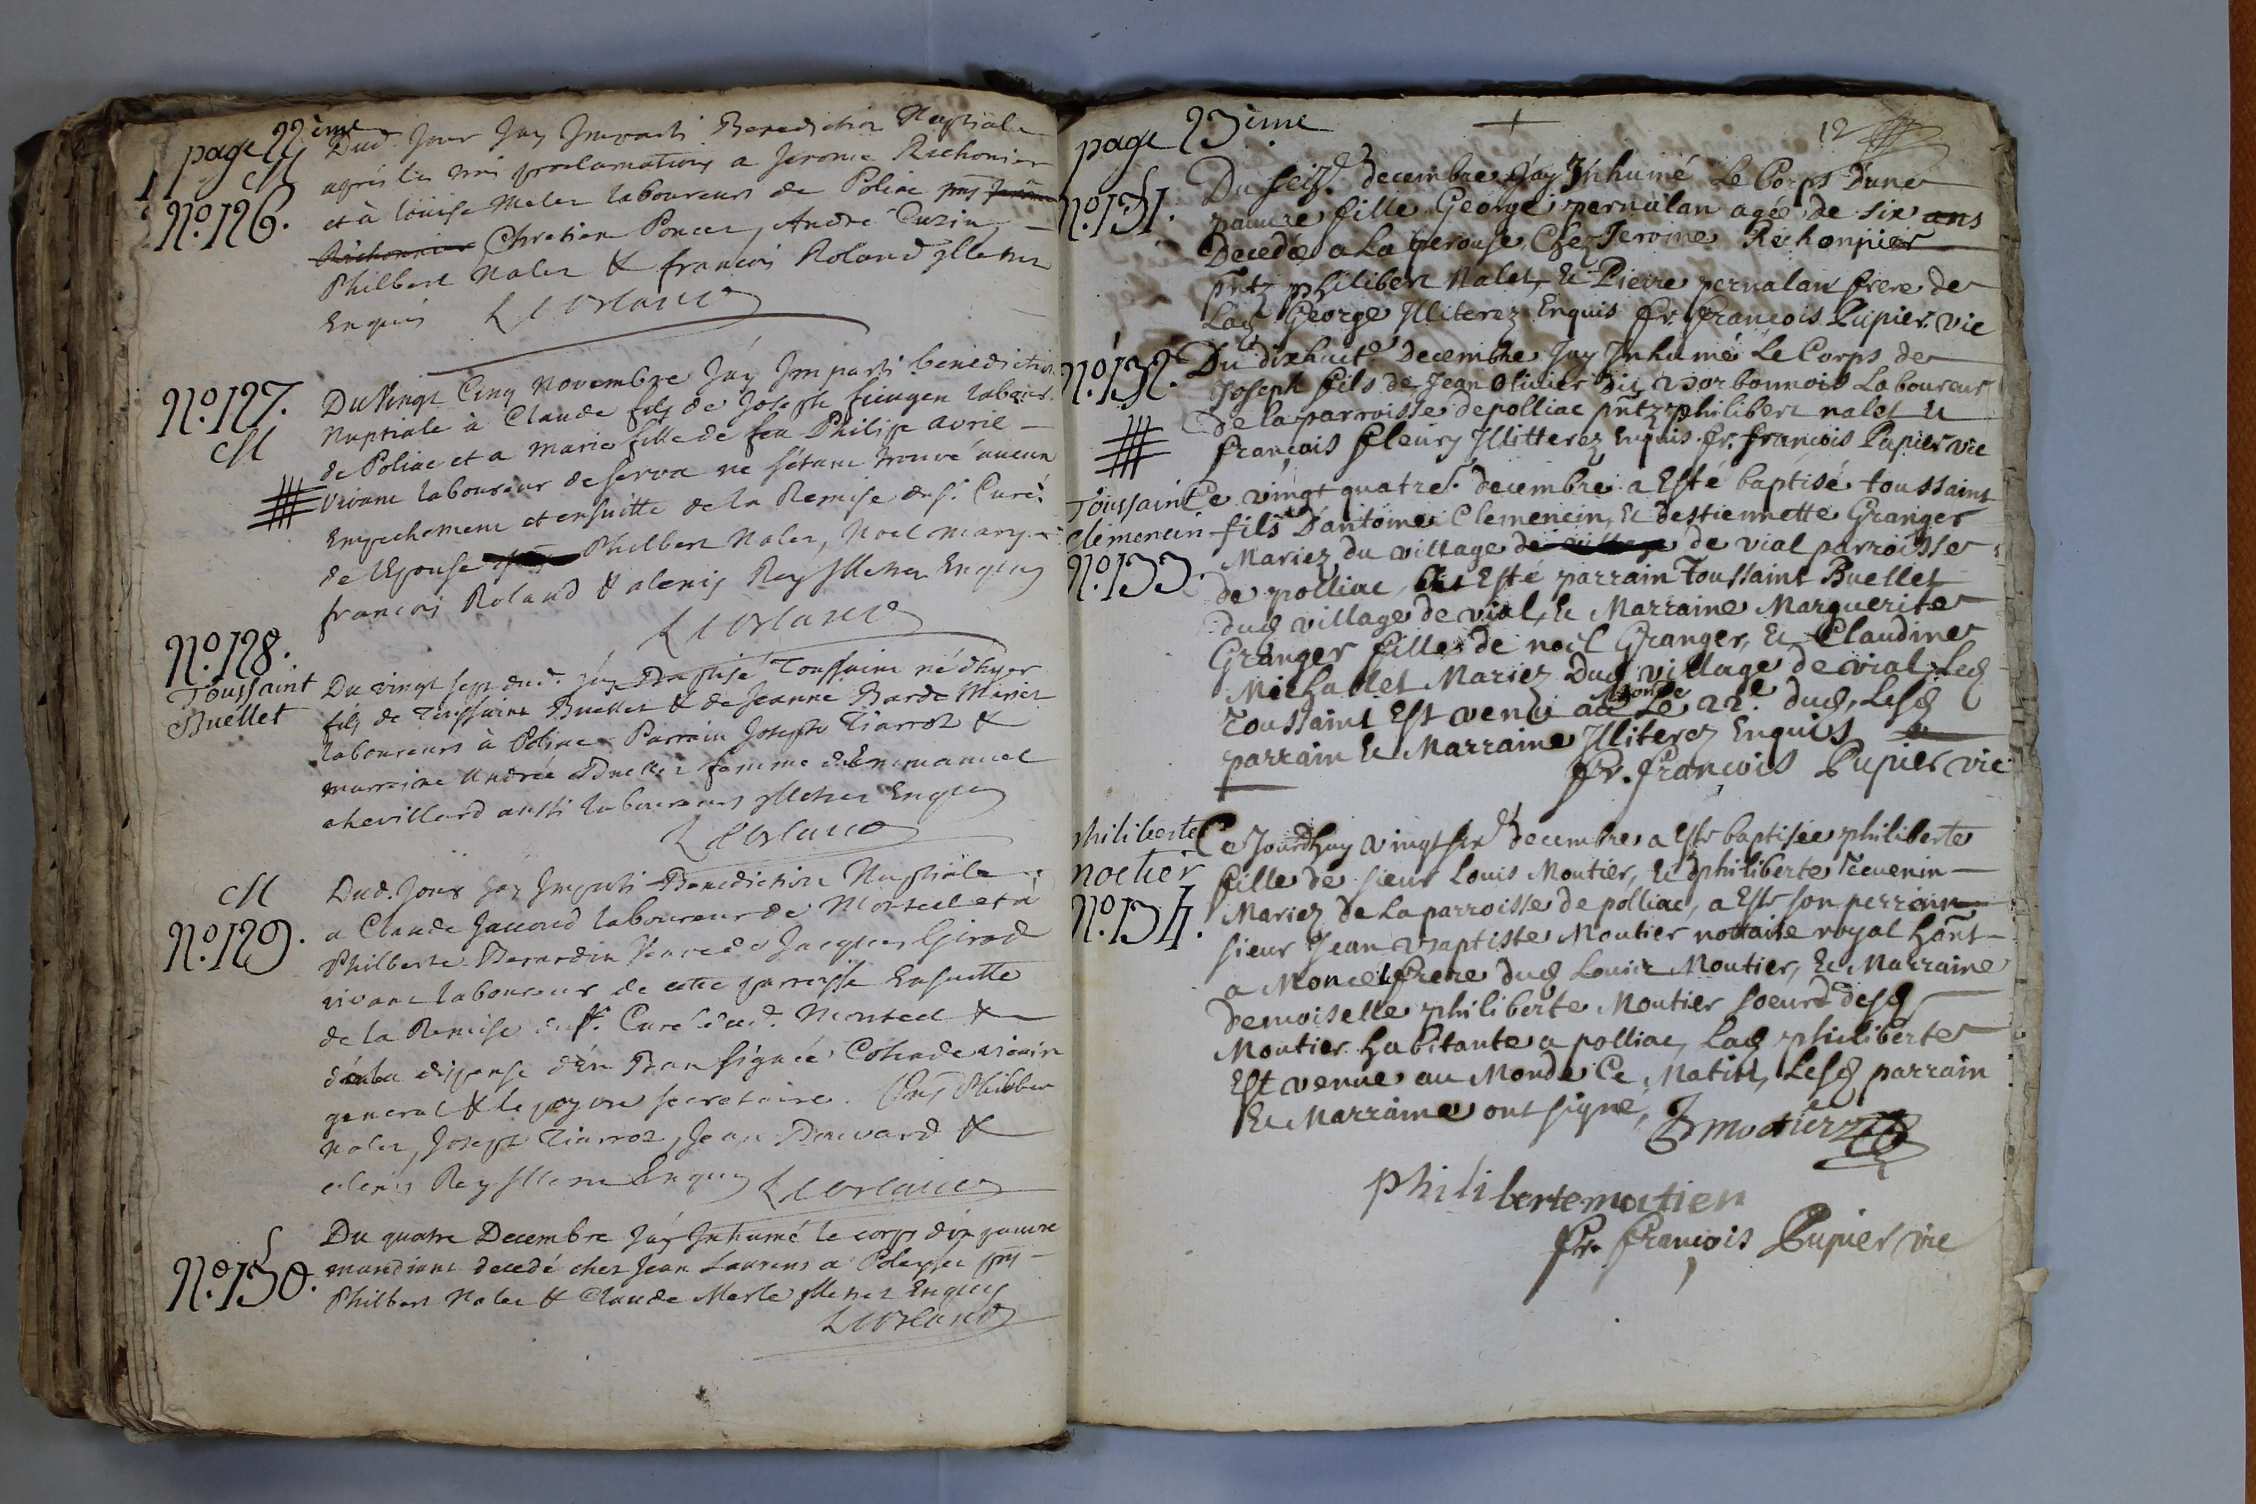 page 22ème
M
N.º 126.
Dud. Jour Jay Imparti Benediction Nuptiale
après les trois proclamations a Jerome Richonier
et à loüise Malet laboureurs de Poliac pnts
Richonnier Chretien Poncet, André Cuzin,
Philbert Nalet & francois Roland Illetrez
Enquis
N.º 127.
M
Du Vingt Cinq Novembre Jáy Imparti benediction
Nuptiale à Claude fils de Joseph labour.
de Poliac et a marie fille de feu Philippe avril
vivant laboureur de serva ne sétant trouvé aucun
Empechement et ensuitte de la Remise du sr. Curé
de lEpouse Philbert Nalet, Noel mary
francois Roland & alexis Rey Illetrez Enquis
N.º 128.
Toussaint
Buellet
Du vingt sept dud. jáy Baptisé Toussaint né d'hyer
fils de Toussaint Buellet & de Jeanne Barde Mariez
laboureurs à Poliac Parrain Joseph Tiarrot &
marraine Andrée Buellet femme d'Emmanuel
chevillard aussi laboureurs Illetrez Enquis
M
N.º 129.
Dud. Jour Jay Imparti Benediction Nuptiale
a Claude Jacoud laboureur de Montcel et à
Philberte Berardin Veuve de Jacques Girod
vivant laboureur de cette parroisse Ensuitte
de la Remise du sr. Curé dud. Montcel &
de la dispense d'un Ban signée Cohade vicaire
general & secretaire. Pnts Philbert
Nalet, Joseph Tiarrot, Jean &
alexis Rey Illetrez Enquis
N.º 130.
Du quatre Decembre Jáy Inhumé le corps d'un pauvre
mandiant decedé chez Jean Laurens a pnts
Philbert Nalet & Claude Merle Illetrez Enquis
page 23ème
12
N.º 131.
Du seize decembre Jáy Inhumé Le Corps Dune
pauvre fille George pernalan agée de six ans
Decedée a La perouse Chez Jerome Richonnier
pñtz philibert Nalet, Et Pierre pernalan frere de
Lad George Illiterez Enquis fr. françois Pupier vic
N.º 132.
Du dixhuite Decembre Jay Inhumé Le Corps de
Joseph fils de Jean olivier dit Borbonnois Laboureur
De la parroisse de polliac pñtz philibert nalet Et
françois fleury Illitterez Enquis fr. françois Pupier vic
Toussaint
Clemencin
N.º 133.
Ce vingt quatre decembre a Esté baptisé toussaint
fils D'antoine Clemencin, Et destiennette Granger
Mariez du village de village de vial parroisse
de polliac, Esté parrain Toussaint Buellet
dud village de vial, Et Marraine Marguerite
Granger fille de noël Granger, Et Claudine
Michallet Mariez Dud village de vial, Led
Toussaint Est venu au Monde Le 22e dud, Lesd
parrain Et Marraine Illiterez Enquis
fr. françois Pupier vic
philiberte
Moctier
N.º 134.
Ce Jourdhuy vingt six decembre a Esté baptisée philiberte
fille de sieur Louis Moutier, Et philiberte Tevenin
Mariez de La parroisse de polliac, a Esté son perrain
sieur Jean Baptiste Moutier nottaire royal hãnt
a Moncel frere dud Louis Moutier, Et Marraine
Demoiselle philiberte Moutier soeurs desd
Moutier habitante a polliac, Lad philiberte
Est venue au Monde Ce Matin, Lesd parrain
Et Marraine ont signé,
philiberte moctier
fr. françois Pupier vic